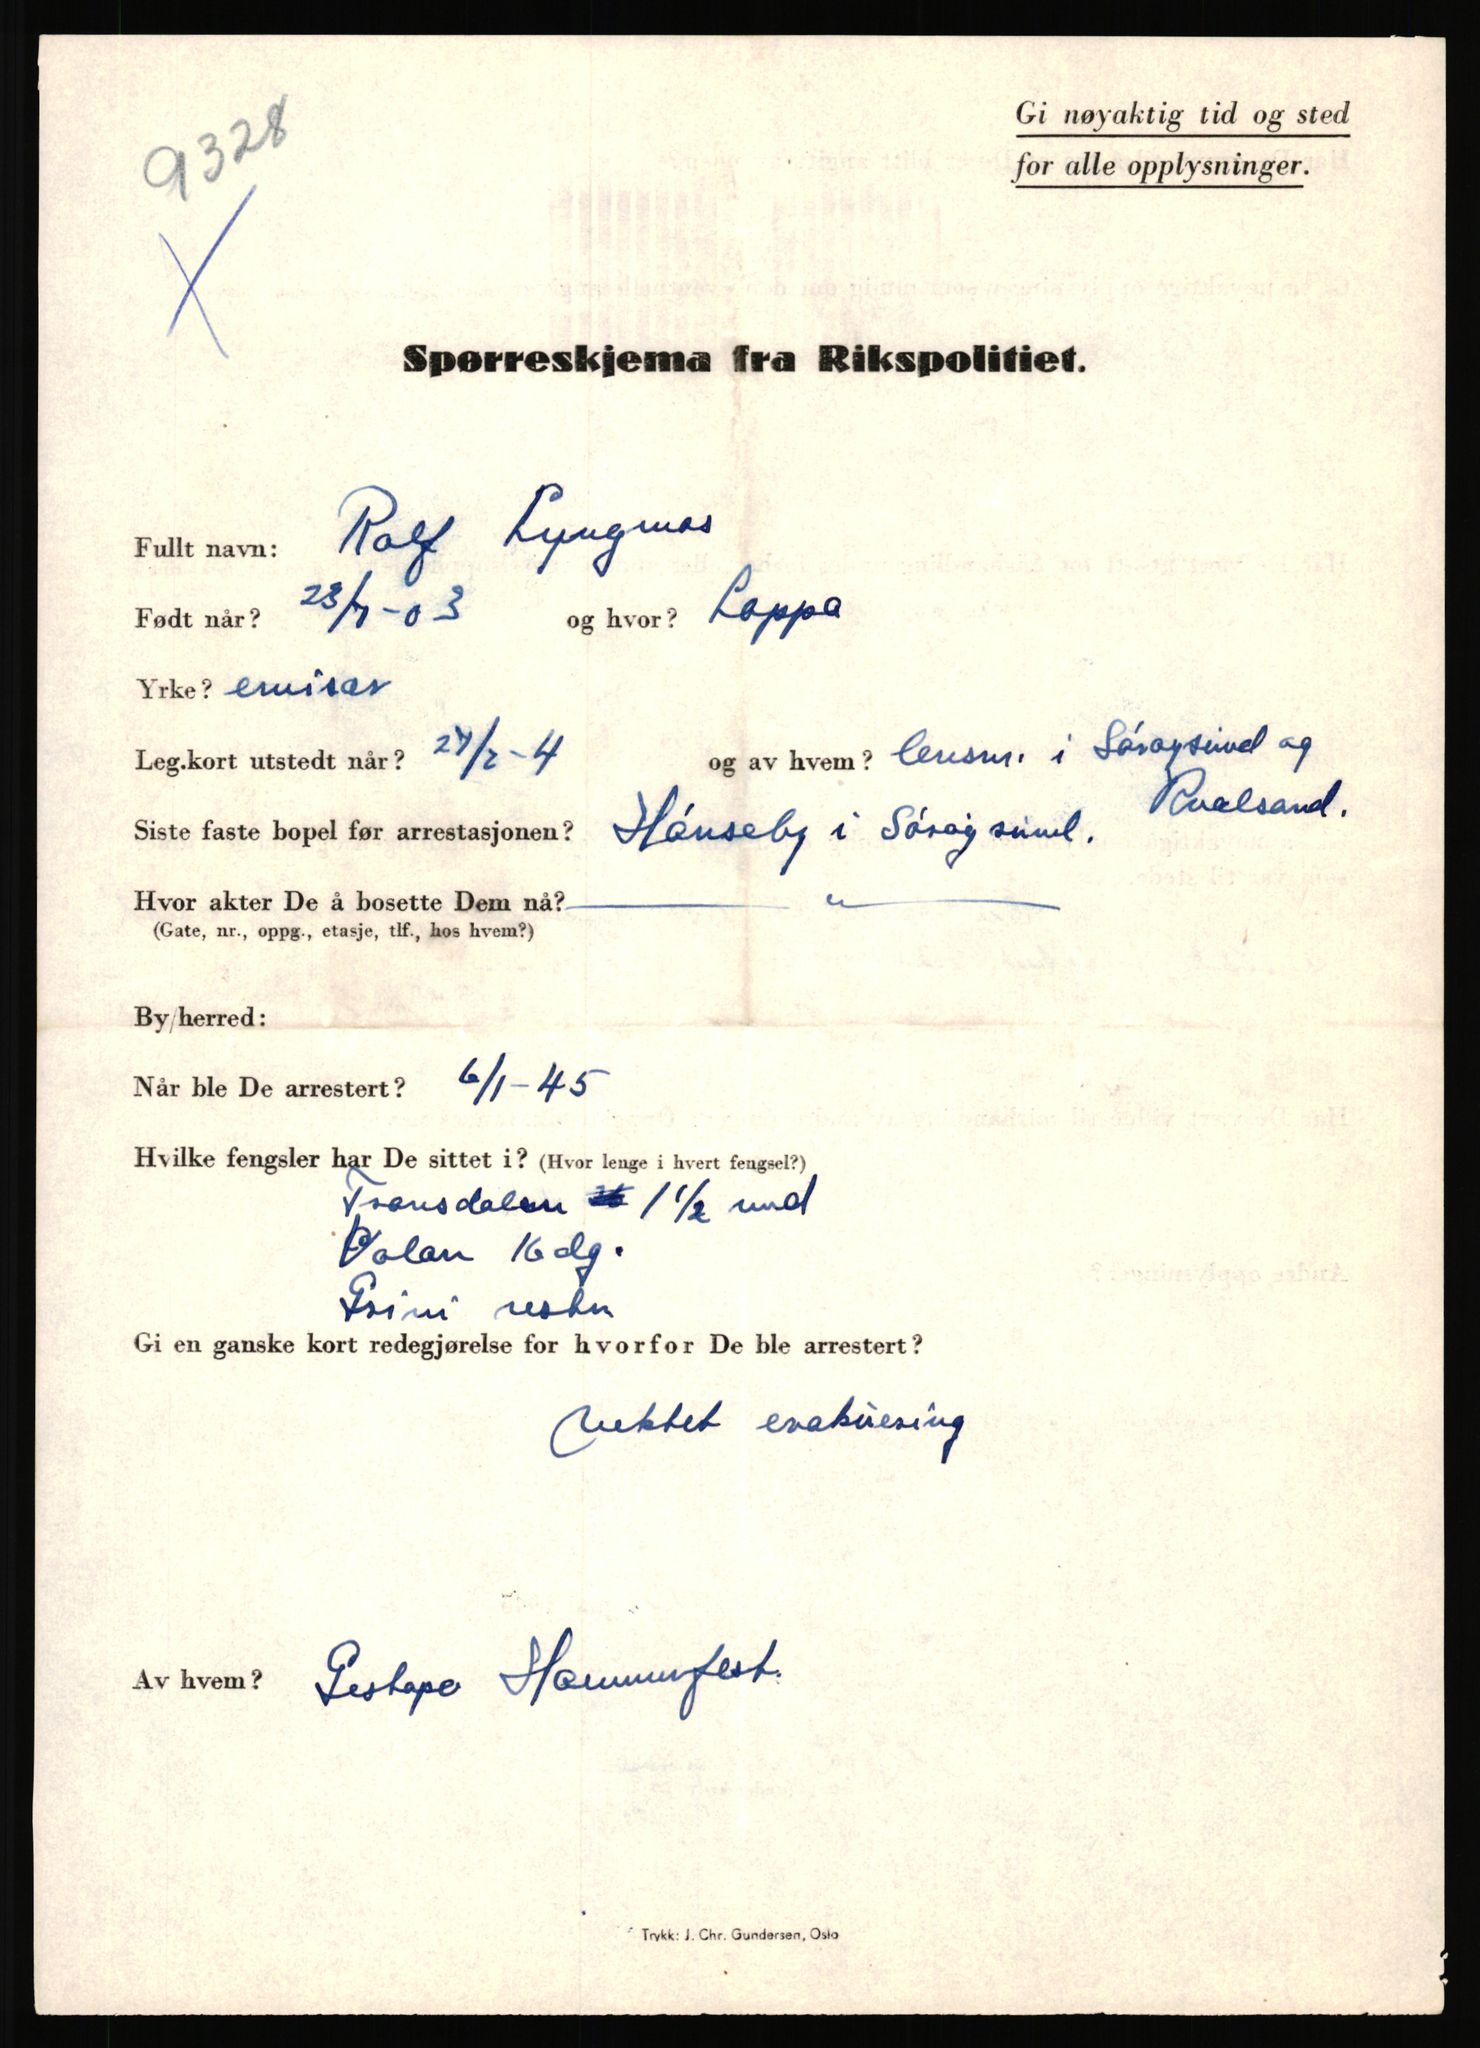 9328
Gi nøyaktig tid og sted
for alle opplysninger.
Spørreskjema fra Rikspolitiet.
Fullt navn: Rolf Lyngmos
Født når? 23/7-03 og hvor? Loppa
Yrke? emisær
Leg.kort utstedt når? 27/2-4 og av hvem? lensm. i Sórøysund og
Kvalsund.
Siste faste bopel før arrestasjonen? Hónseby i Sórøysund.
Hvor akter De å bosette Dem nå? — " —
(Gate, nr., oppg., etasje, tlf., hos hvem?)
By/herred:
Når ble De arrestert? 6/1-45
Hvilke fengsler har De sittet i? (Hvor lenge i hvert fengsel?)
Tromsdalen 1 1/2 mnd
Volan 16 dg.
Grini resten
Gi en ganske kort redegjørelse for hvorfor De ble arrestert?
nektet evakuering
Av hvem? Gestapo Hammerfest.
Trykk: J. Chr. Gundersen, Oslo